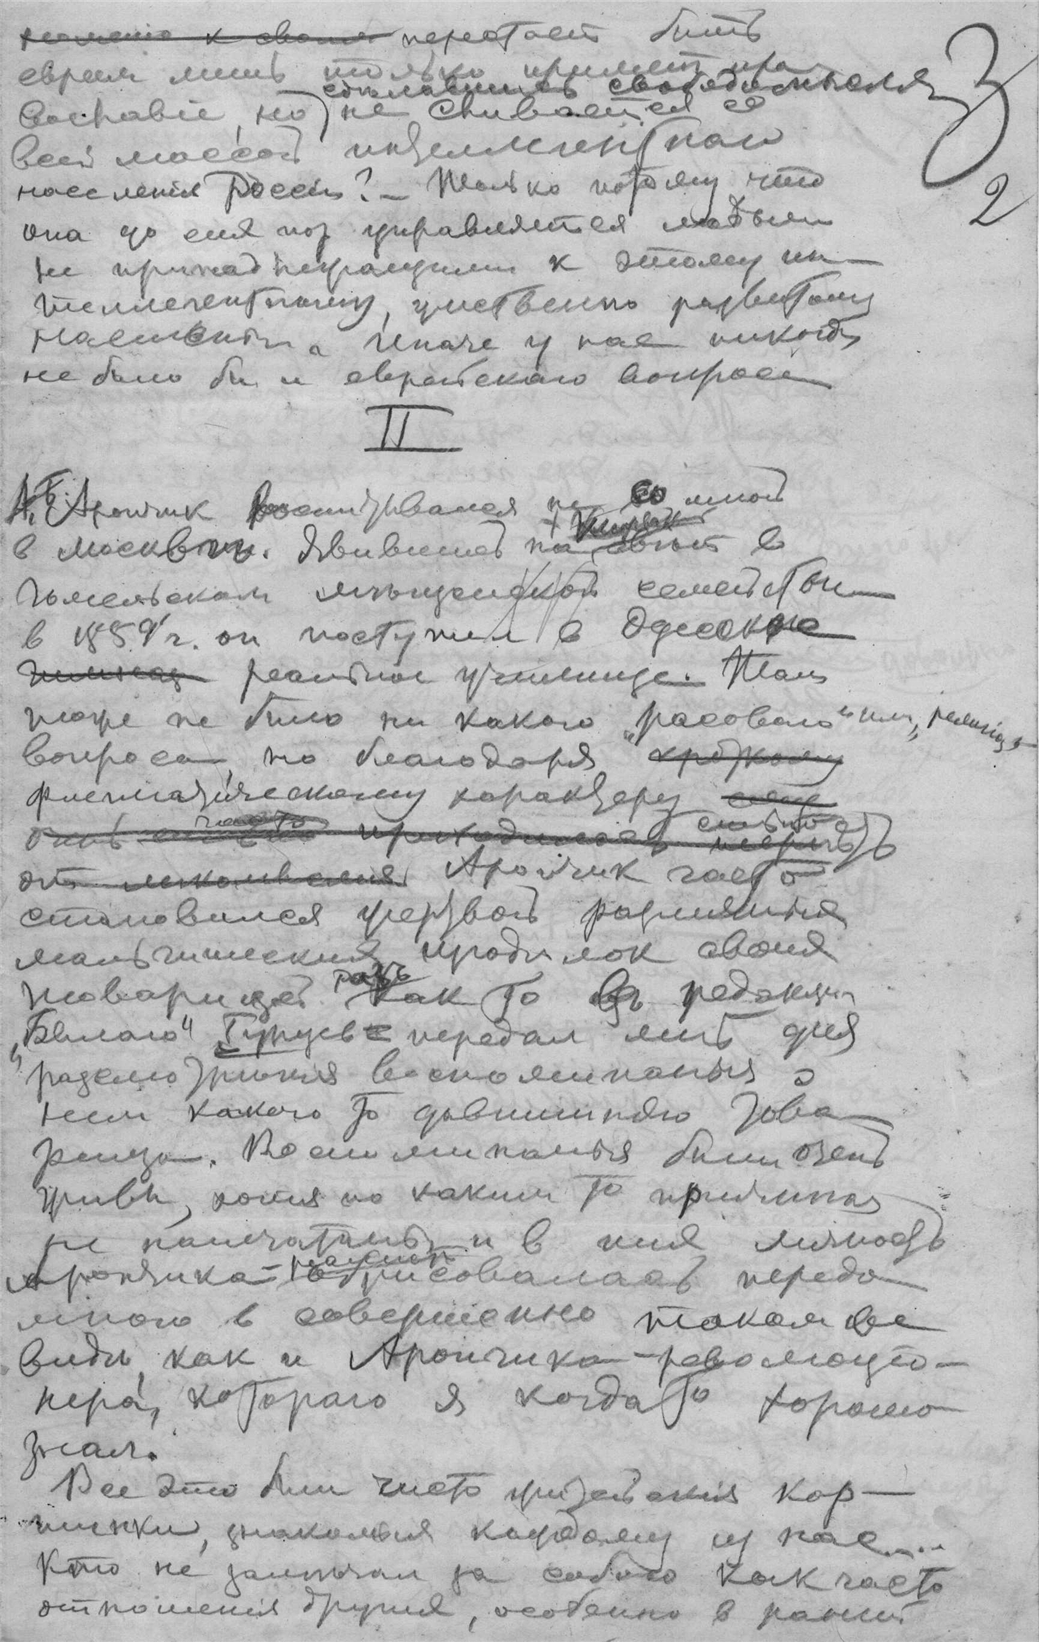 перестает быть
евреем лишь только приметъ пра-
сделавшись свободомысля
вославие, но не сливается со
всей массой интеллигентнаго
населения России? — Только потому что
она до сих пор управляется людьми
не принадлежащими к этому ин-
теллегентному, умственно развитому
населенію. Иначе у нас никогда
не было бы и еврейскаго вопроса
II
А.Б. Арончик воспитывался не со мной
в Москве. Явившись на свет в
гомельском мещанской семействе
в 1859 г. он поступил в Одесское
гимназ реальное училище. Там
тоже не было ни какого „расоваго" или „религіоз
вопроса, но благодаря кроткому
флегматическому характеру
часто
приходилось
Арончик часто
становился жертвой различных
мальчишеских проделок своих
товарищей разъ Как то въ редакции
„Былого" Бурцев передал мне для
разсмотрения воспоминания о
нем какого то давнишняго това-
рища. Воспоминанья были очень
живы, хотя по каким то причинам
не напечатаны и в них личность
Арончика рисовалась передо
мною в совершенно таком же
виде, как и Арончика-революціо-
нера, котораго я когда то хорошо
знал.
Все это были чисто житейския кар-
тинки, знакомыя каждому из нас....
Кто не замечал за собою как часто
отношения других, особенно в ранней
3
2